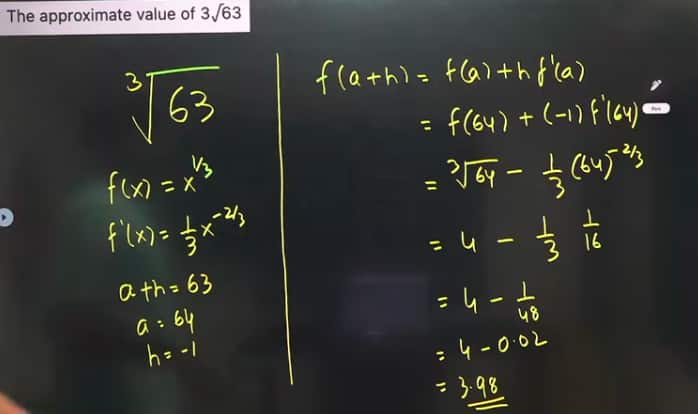 The approximate value of 3√63
∛63
f(x) = x^1/3
f'(x) = 1/3 x^-2/3
a+h = 63
a = 64
h = -1
f(a+h) = f(a) + h f'(a)
= f(64) + (-1) f'(64)
= ∛64 - 1/3 (64)^-2/3
= 4 - 1/3 1/16
= 4 - 1/48
= 4 - 0.02
= 3.98